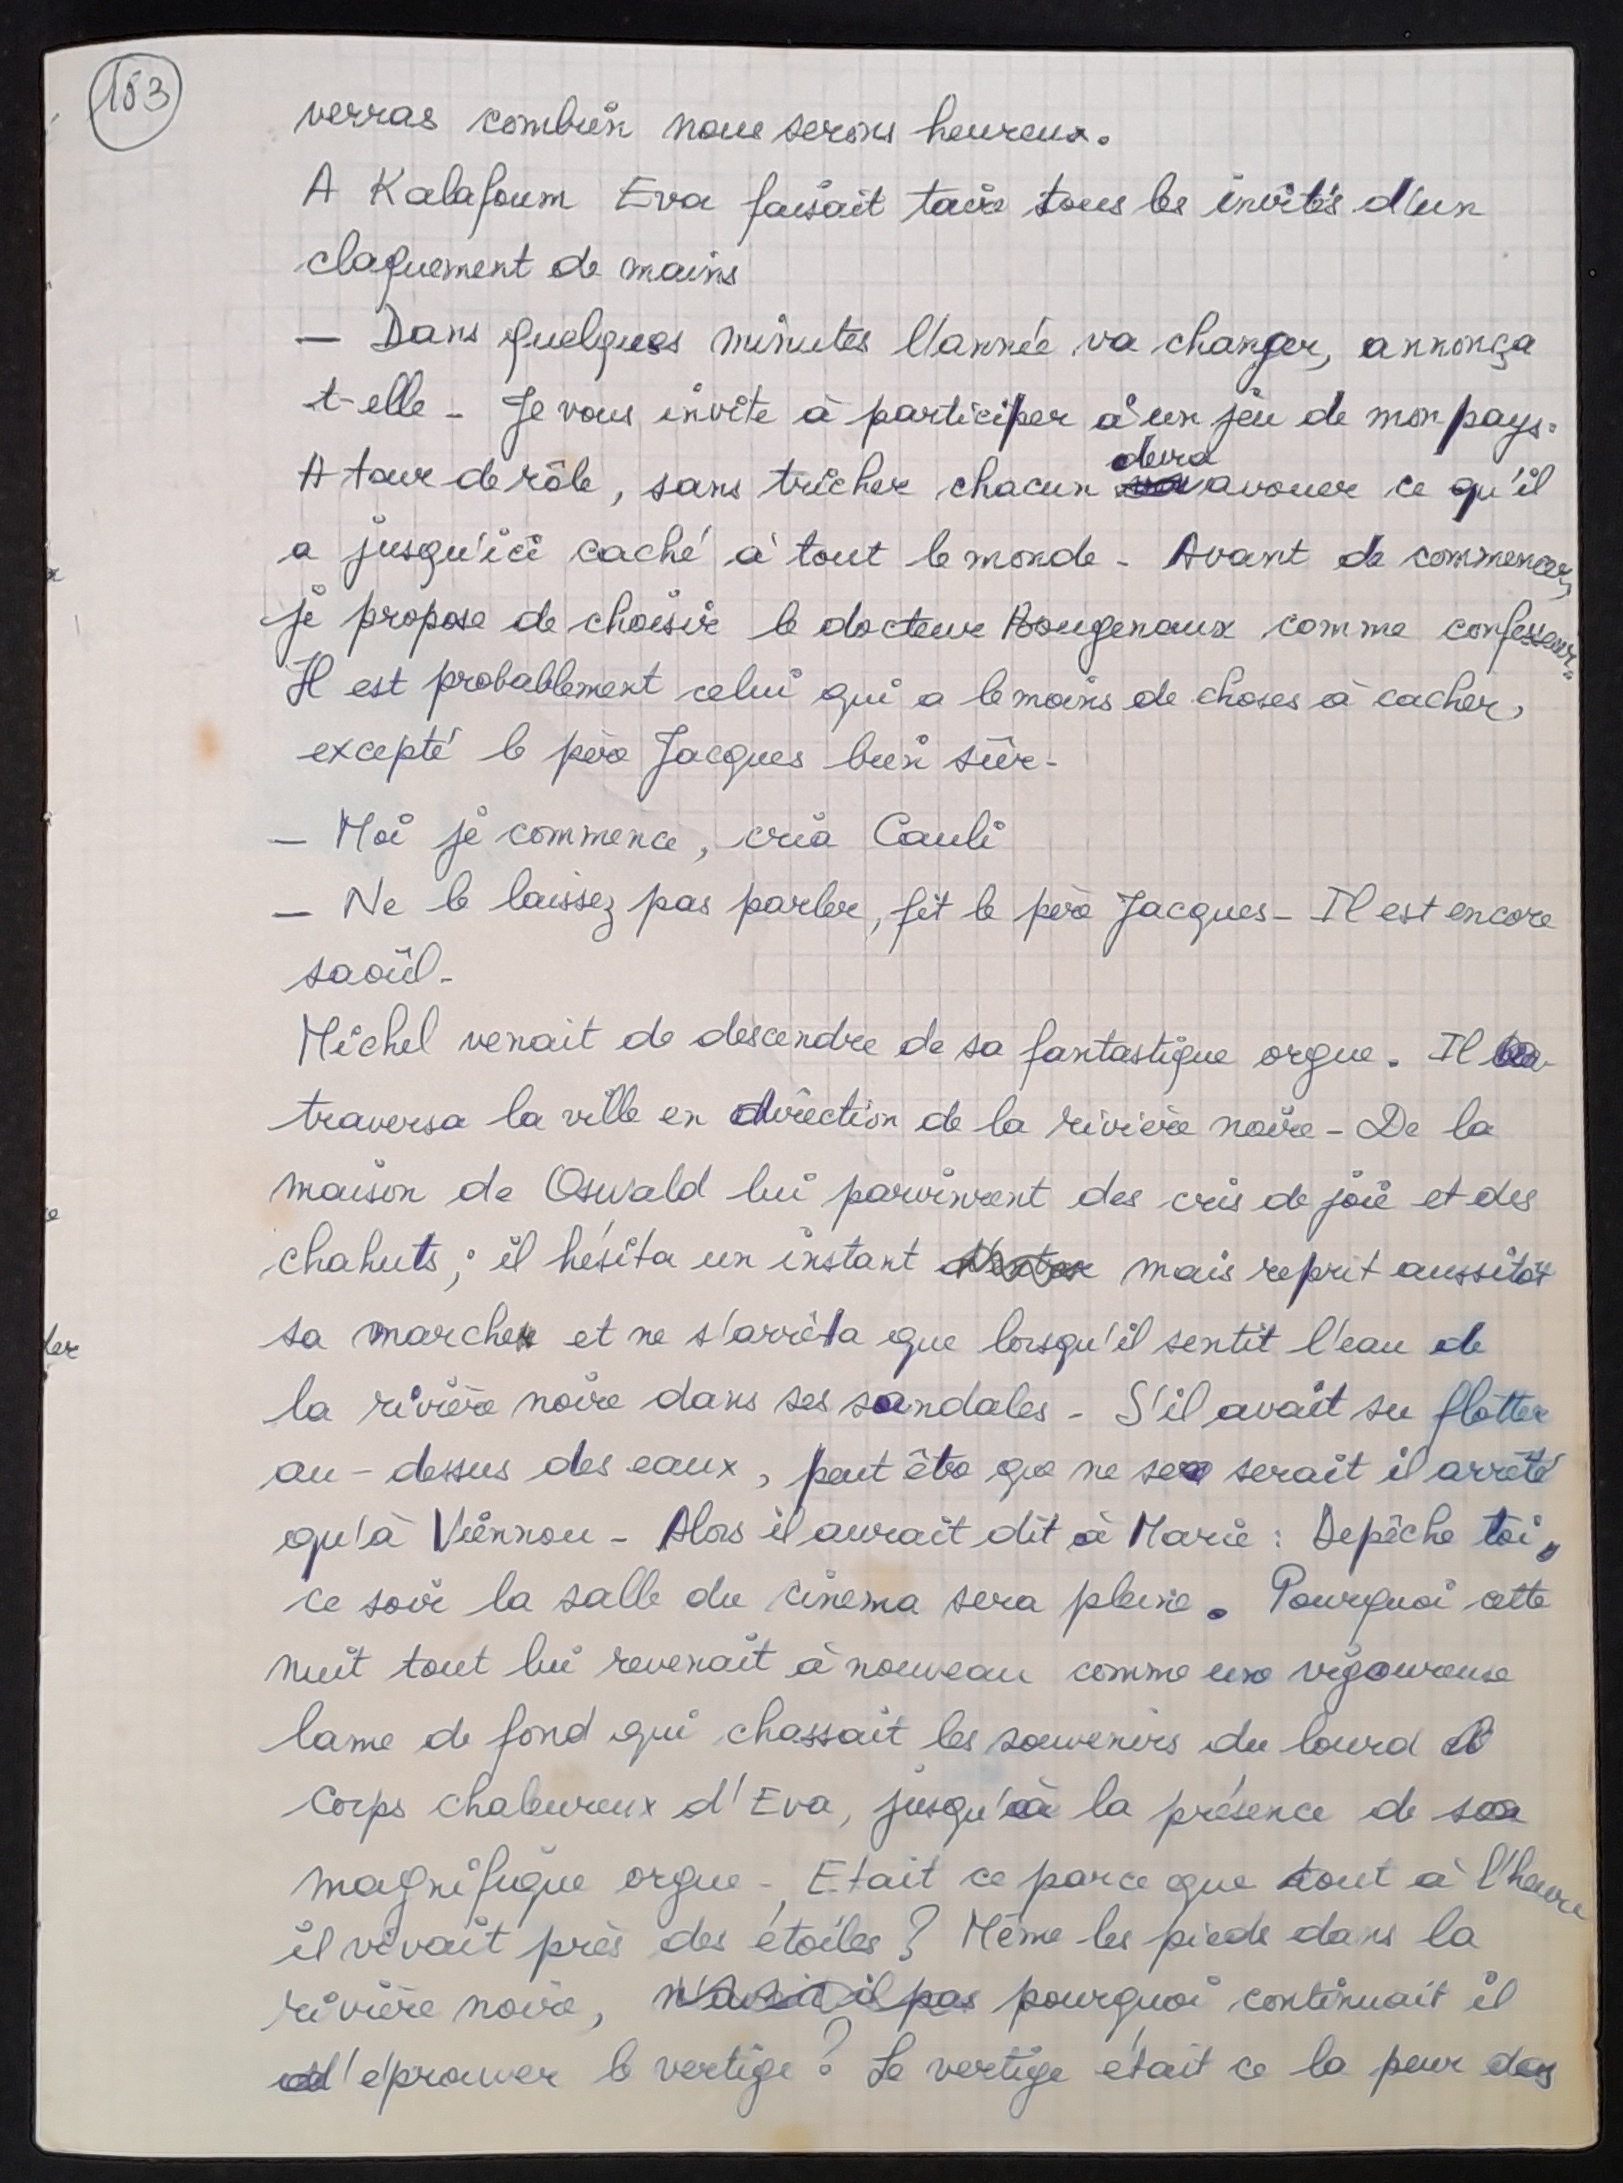 153
verras combien nous serons heureux.
A Kalafoum Eva faisait taire tous les invités d'un
claquement de mains
— Dans quelques minutes l'année va changer, annonça
t-elle - Je vous invite à participer à un jeu de mon pays.
A tour de rôle, sans tricher chacun devra avouer ce qu'il
a jusqu'ici caché à tout le monde - Avant de commencer,
je propose de choisir le docteur Bougenaux comme confesseur.
Il est probablement celui qui a le moins de choses à cacher,
excepté le père Jacques bien sûr -
— Moi je commence, cria Cauli
— Ne le laissez pas parler, fit le père Jacques - Il est encore
saoûl -
Michel venait de descendre de sa fantastique orgue. Il
traversa la ville en direction de la rivière noire - De la
maison de Oswald lui parvinrent des cris de joie et des
chahuts; il hésita un instant mais reprit aussitôt
sa marche et ne s'arrêta que lorsqu'il sentit l'eau de
la rivière noire dans ses sandales - S'il avait su flotter
au-dessus des eaux, peut être que ne se serait il arrêté
qu'à Viennou - Alors il aurait dit à Marie : Depêche toi,
ce soir la salle du cinema sera pleine. Pourquoi cette
nuit tout lui revenait à nouveau comme une vigoureuse
lame de fond qui chassait les souvenirs du lourd
corps chaleureux d'Eva, jusqu'à la présence de sa
magnifique orgue - Etait ce parce que tout à l'heure
il vivait près des étoiles ? Même les pieds dans la
rivière noire, pourquoi continuait il
d'éprouver le vertige ? Le vertige était ce la peur des